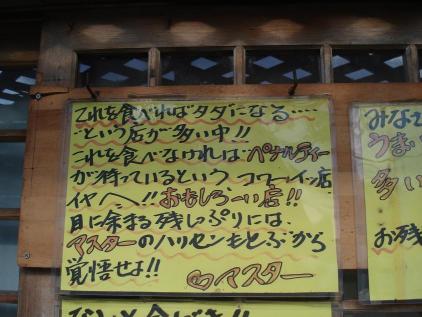 これを食べればタダになる…
という店が多い中!!
これを食べなければペナルティー
が待っているという コワーイッ店
イヤヘヘ!! おもしろーい店!!
目に余まる残しっぷりには、
マスターのハリセンもとぶから
覚悟せよ!!
マスター
みなで
うまい
多い
お残